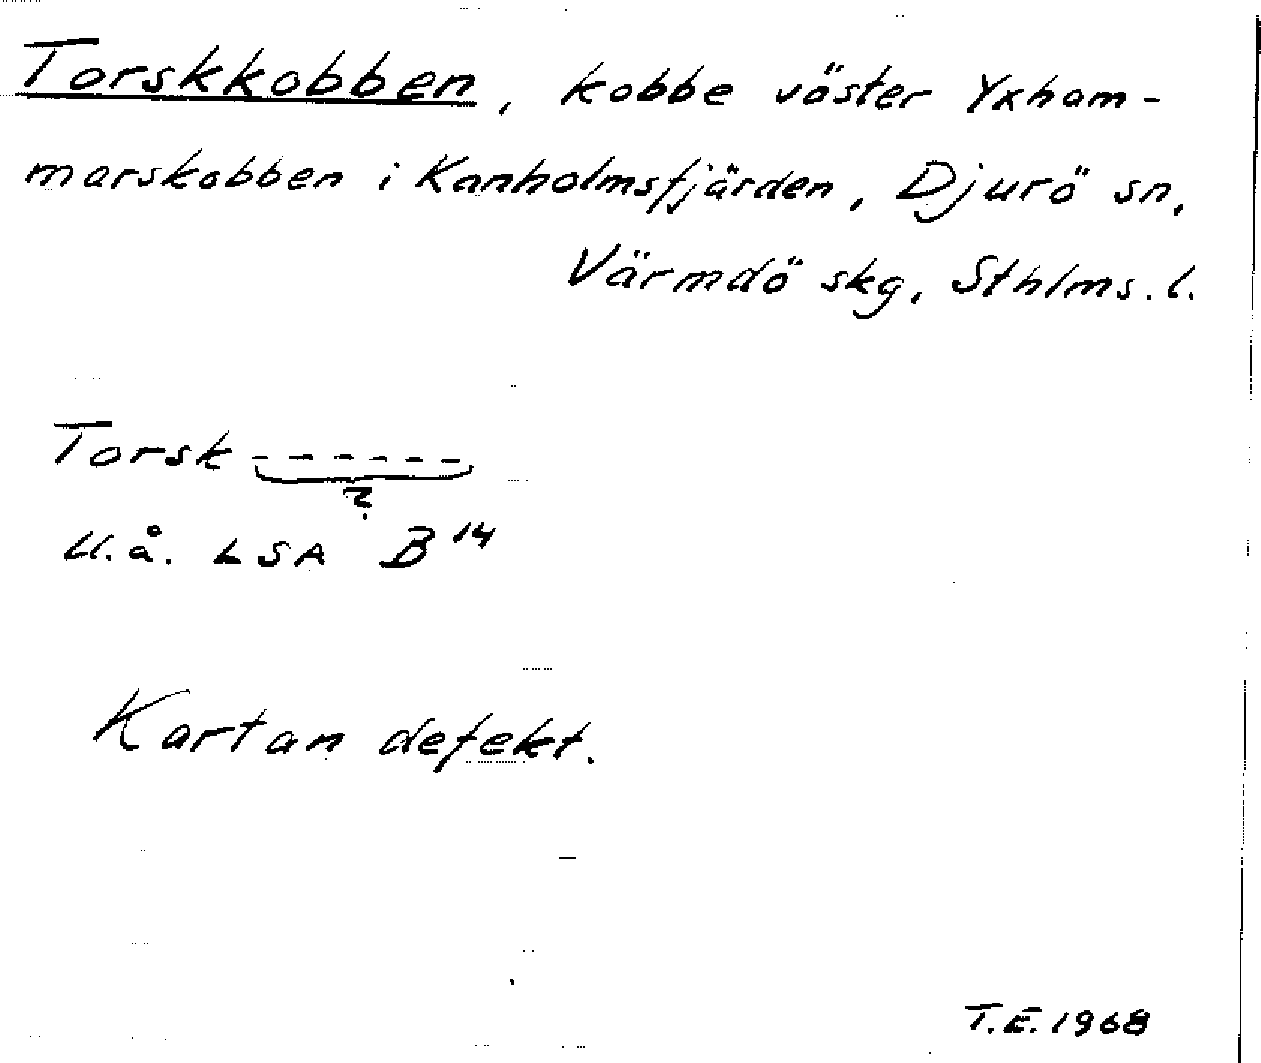 Torskkobben, kobbe väster Yxham-
marskobben i Kanholmsfjärden, Djurö sn,
Värmdö skg, Sthlms. l.
Torsk - - - - -
?
U.å. LSA B 14
Kartan defekt.
T.E. 1968